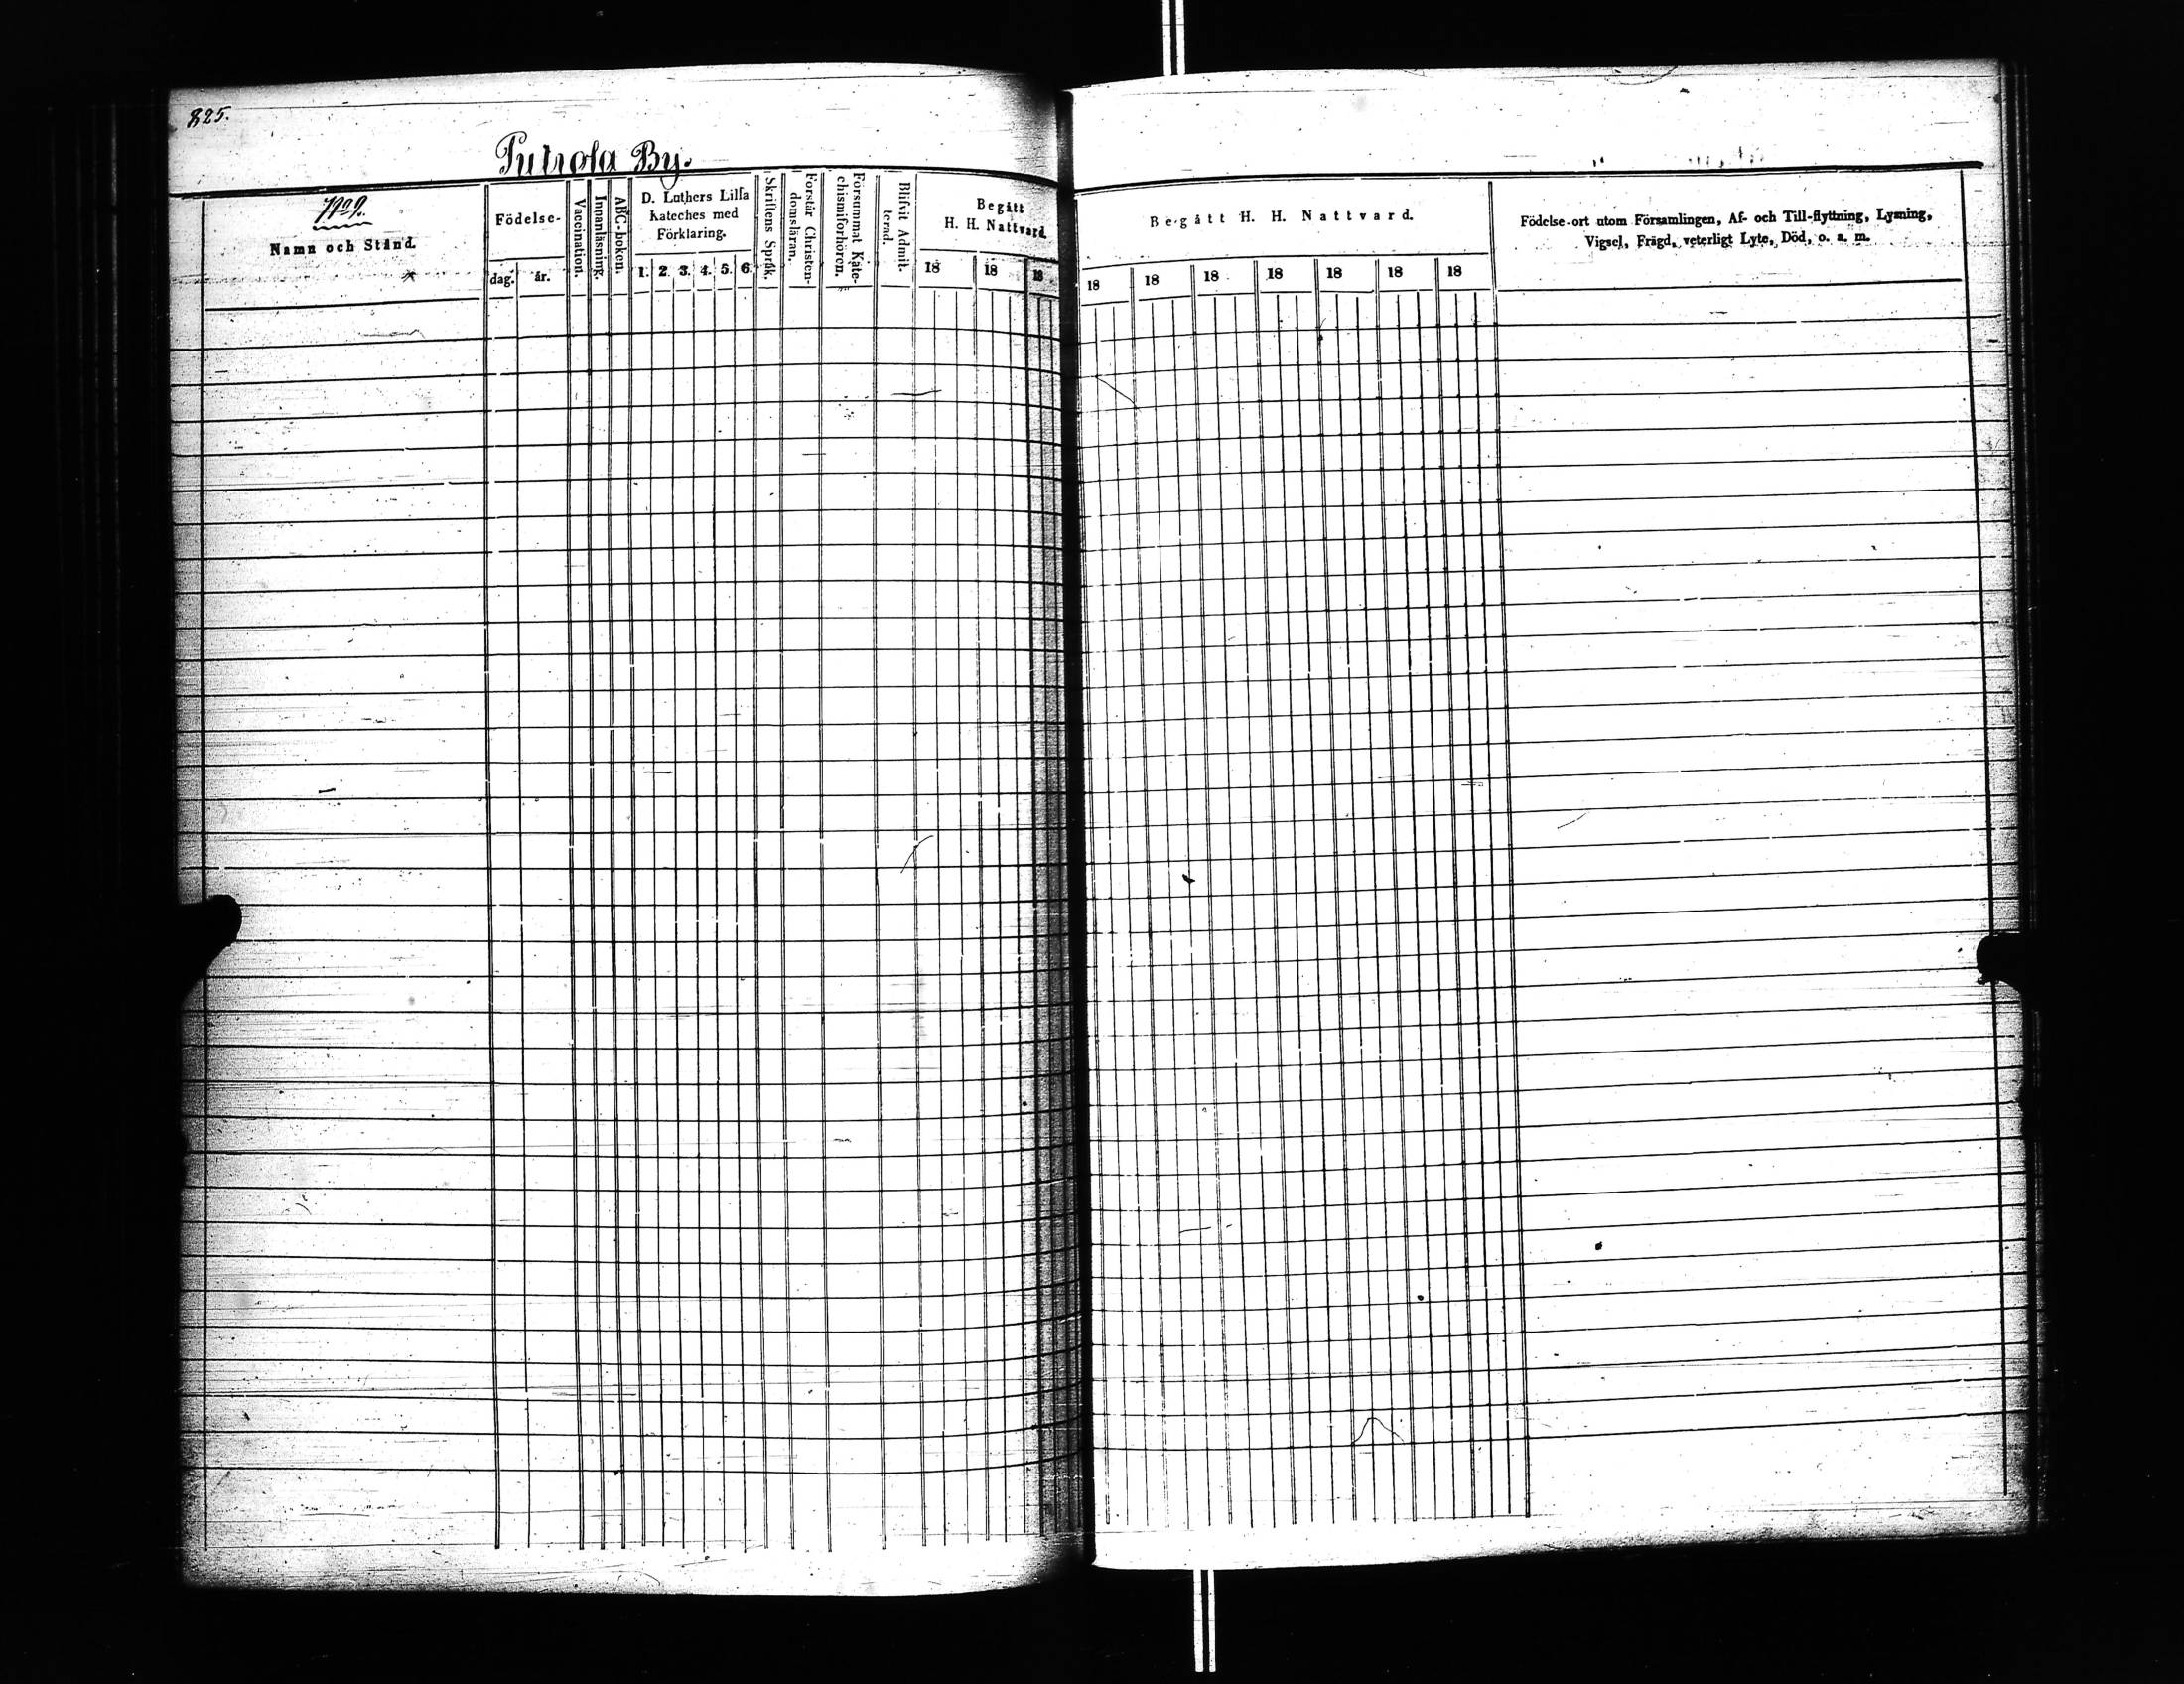 825.
Putrola By.
N:o 9.
Namn och Stånd.
Födelse-
dag. år.
Vaccination.
Innanläsning.
ABC-boken.
D. Luthers Lilla
Kateches med
Förklaring.
1. 2. 3. 4. 5. 6.
Skriftens Språk.
Förstår Christen-
domsläran.
Försummat Kate-
chismiförhören.
Blifvit Admit-
terad.
Begått
H. H. Nattvard.
18 18 18
Begått H. H. Nattvard.
18 18 18 18 18 18 18
Födelse-ort utom Församlingen, Af- och Till-flyttning, Lysning,
Vigsel, Frägd, veterligt Lyte, Död, o. s. m.